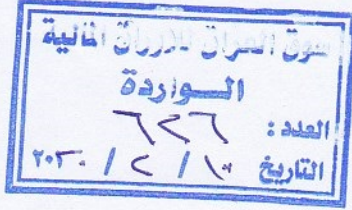 سوق العراق للاوراق المالية
الـــواردة
العدد : ٦٢٦
التاريخ ١٠ / ٢ / ٢٠٢٠